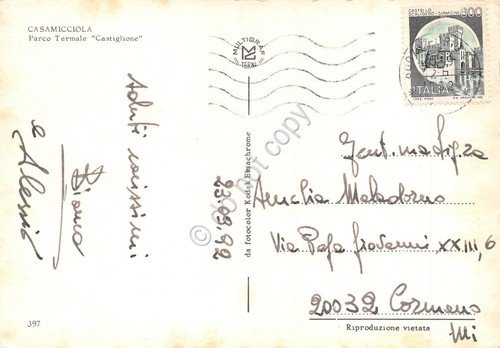 CASAMICCIOLA
Parco Termale "Castiglione"
MULTIGRAF
TERNI
CASTELLO
600
ITALIA
Saluti carissimi
Bianca
e Alessio
23.09.92
da fotocolor Kodak Ektachrome
Do not copy
Gent.ma Sig.ra
Amelia
Via Papa Giovanni XXIII, 6
20032 Cormano
Mi
397
Riproduzione vietata